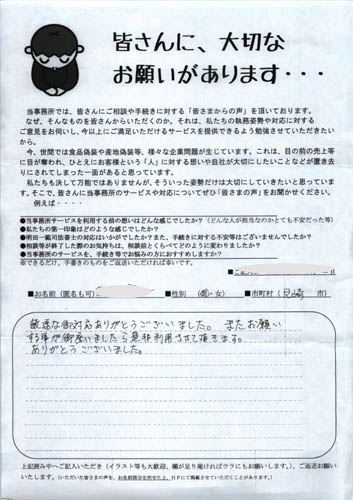 皆さんに、大切な
お願いがあります・・・
当事務所では、皆さんにご相談や手続きに対する「皆さまからの声」を頂いております。
なぜ、そんなものを皆さんからいただくのか。それは、私たちの執務姿勢や対応に対する
ご意見をお伺いし、今以上にご満足いただけるサービスを提供できるよう勉強させていただきたい
から。
今、世間では食品偽装や産地偽装等、様々な企業問題が生じています。これは、目の前の売上等
に目が奪われ、ひとえにお客様という「人」に対する想いや自社が大切にしたいことなどが置き去
りにされてしまった一面があると思っています。
私たちも決して万能ではありませんが、そういった姿勢だけは大切にしていきたいと思っていま
す。そこで、皆さんに当事務所のサービスや対応についてぜひ「皆さまの声」をお聞かせください。
例えば・・・・
●当事務所サービスを利用する前の想いはどんな感じでしたか?(どんな人が担当なのかとても不安だった等)
●私たちの第一印象はどのような感じでしたか?
●明田一範司法書士の対応はいかがでしたか?また、手続きに対する不安等はございませんでしたか?
●相談等が終了した際のお気持ちは、相談前とくらべてどのように変わりましたか?
●当事務所のサービスを、手続き等でお悩みの方におすすめしますか?
※できるだけ、手書きのものをご返送いただければ幸いです。
■お名前(匿名も可) ■性別 (男・女) ■市町村( 尼崎 市)
敏速な御対応ありがとうございました。またお願い
する事が御座いましたら是非利用させて頂きます。
ありがとうございました。
上記囲み中へご記入いただき(イラスト等も大歓迎、欄が足り庵ければウラにもお願いします。)、ご返送お願い
いたします。(いただいた皆さまの声を、お名前部分を伏せた上、HPにて掲載させていただくことがあります。)